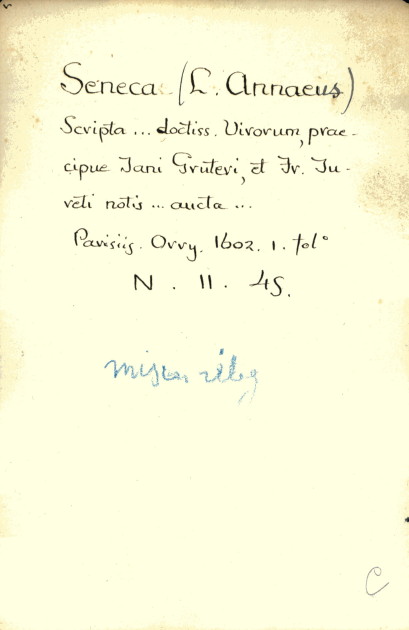 Seneca (L. Annaeus)
Scripta ... doctiss. Virorum, prae-
cipue Jani Gruteri, et Fr. Ju-
reti notis ... aucta ...
Parisiis. Orry. 1602. 1. fol°
N . II . 45.
C